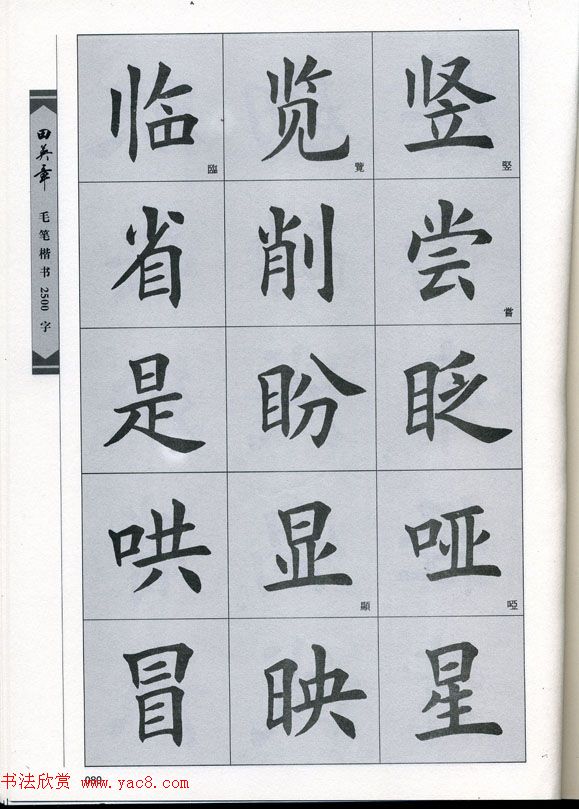 田英章
毛笔楷书2500字
临 览 竖
臨 覽 竪
省 削 尝
嘗
是 盼 眨
哄 显 哑
顯 啞
冒 映 星
书法欣赏 www.yac8.com